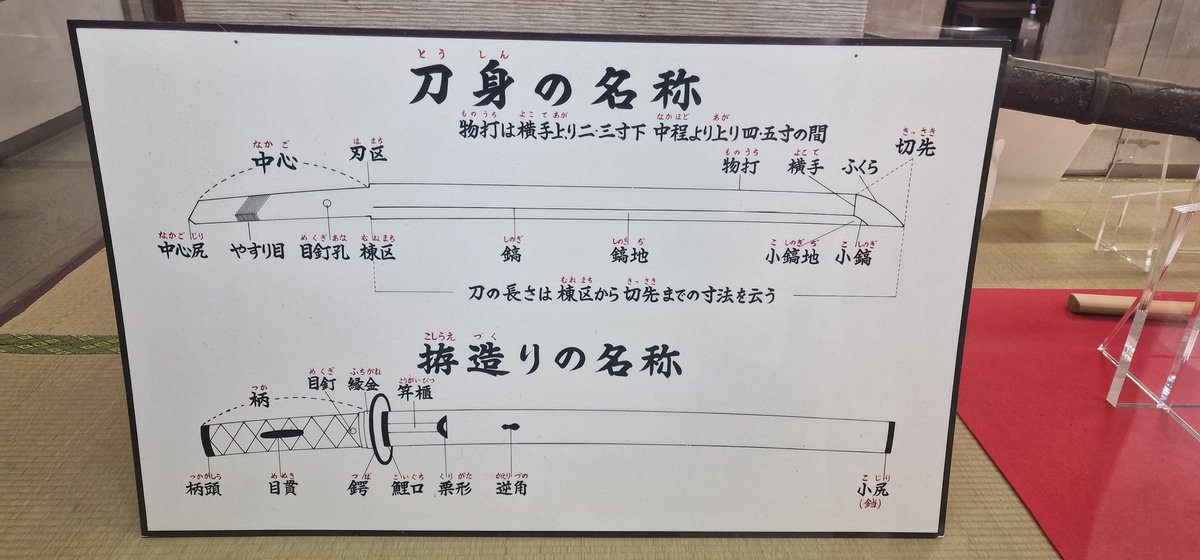 とうしん
刀身の名称
ものうち よこてあが なかほど あが
物打は横手上り二・三寸下 中程より上り四・五寸の間
きっさき
切先
なかご
中心
は まち
刃区
ものうち
物打
よこて
横手
ふくら
なかごじり
中心尻
やすり目
めくぎあな
目釘孔
むねまち
棟区
しのぎ
鎬
しのぎ ぢ
鎬地
こ しのぎぢ
小鎬地
こ しのぎ
小鎬
むねまち きっさき
刀の長さは棟区から切先までの寸法を云う
こしらえ づく
拵造りの名称
つか
柄
めくぎ
目釘
ふちがね
縁金
こうがいびつ
笄櫃
つかがしら
柄頭
めぬき
目貫
つば
鍔
こいぐち
鯉口
くりがた
栗形
かえりづの
逆角
こじり
小尻
(鐺)